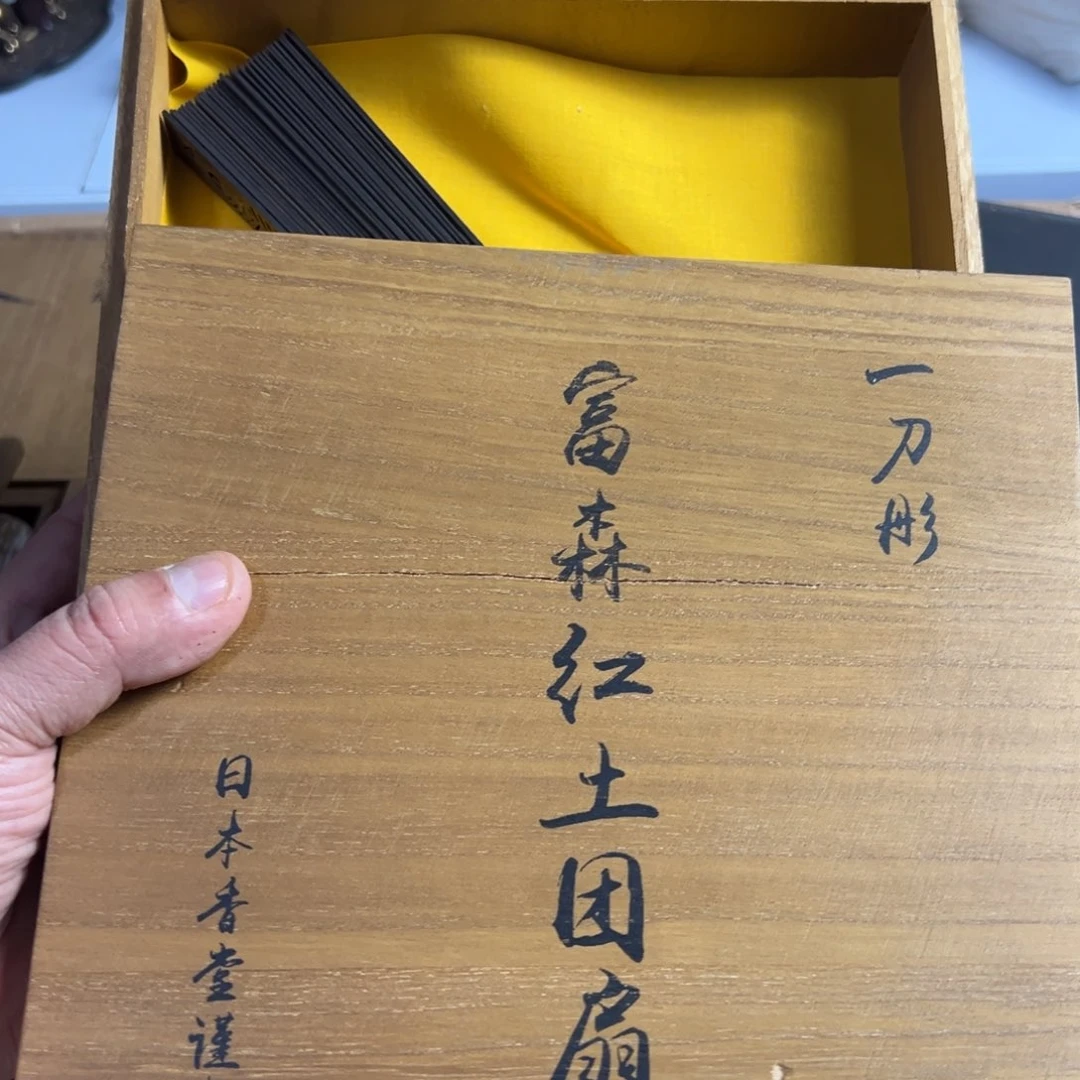 一刀彫
富森紅土团扇
日本香堂謹